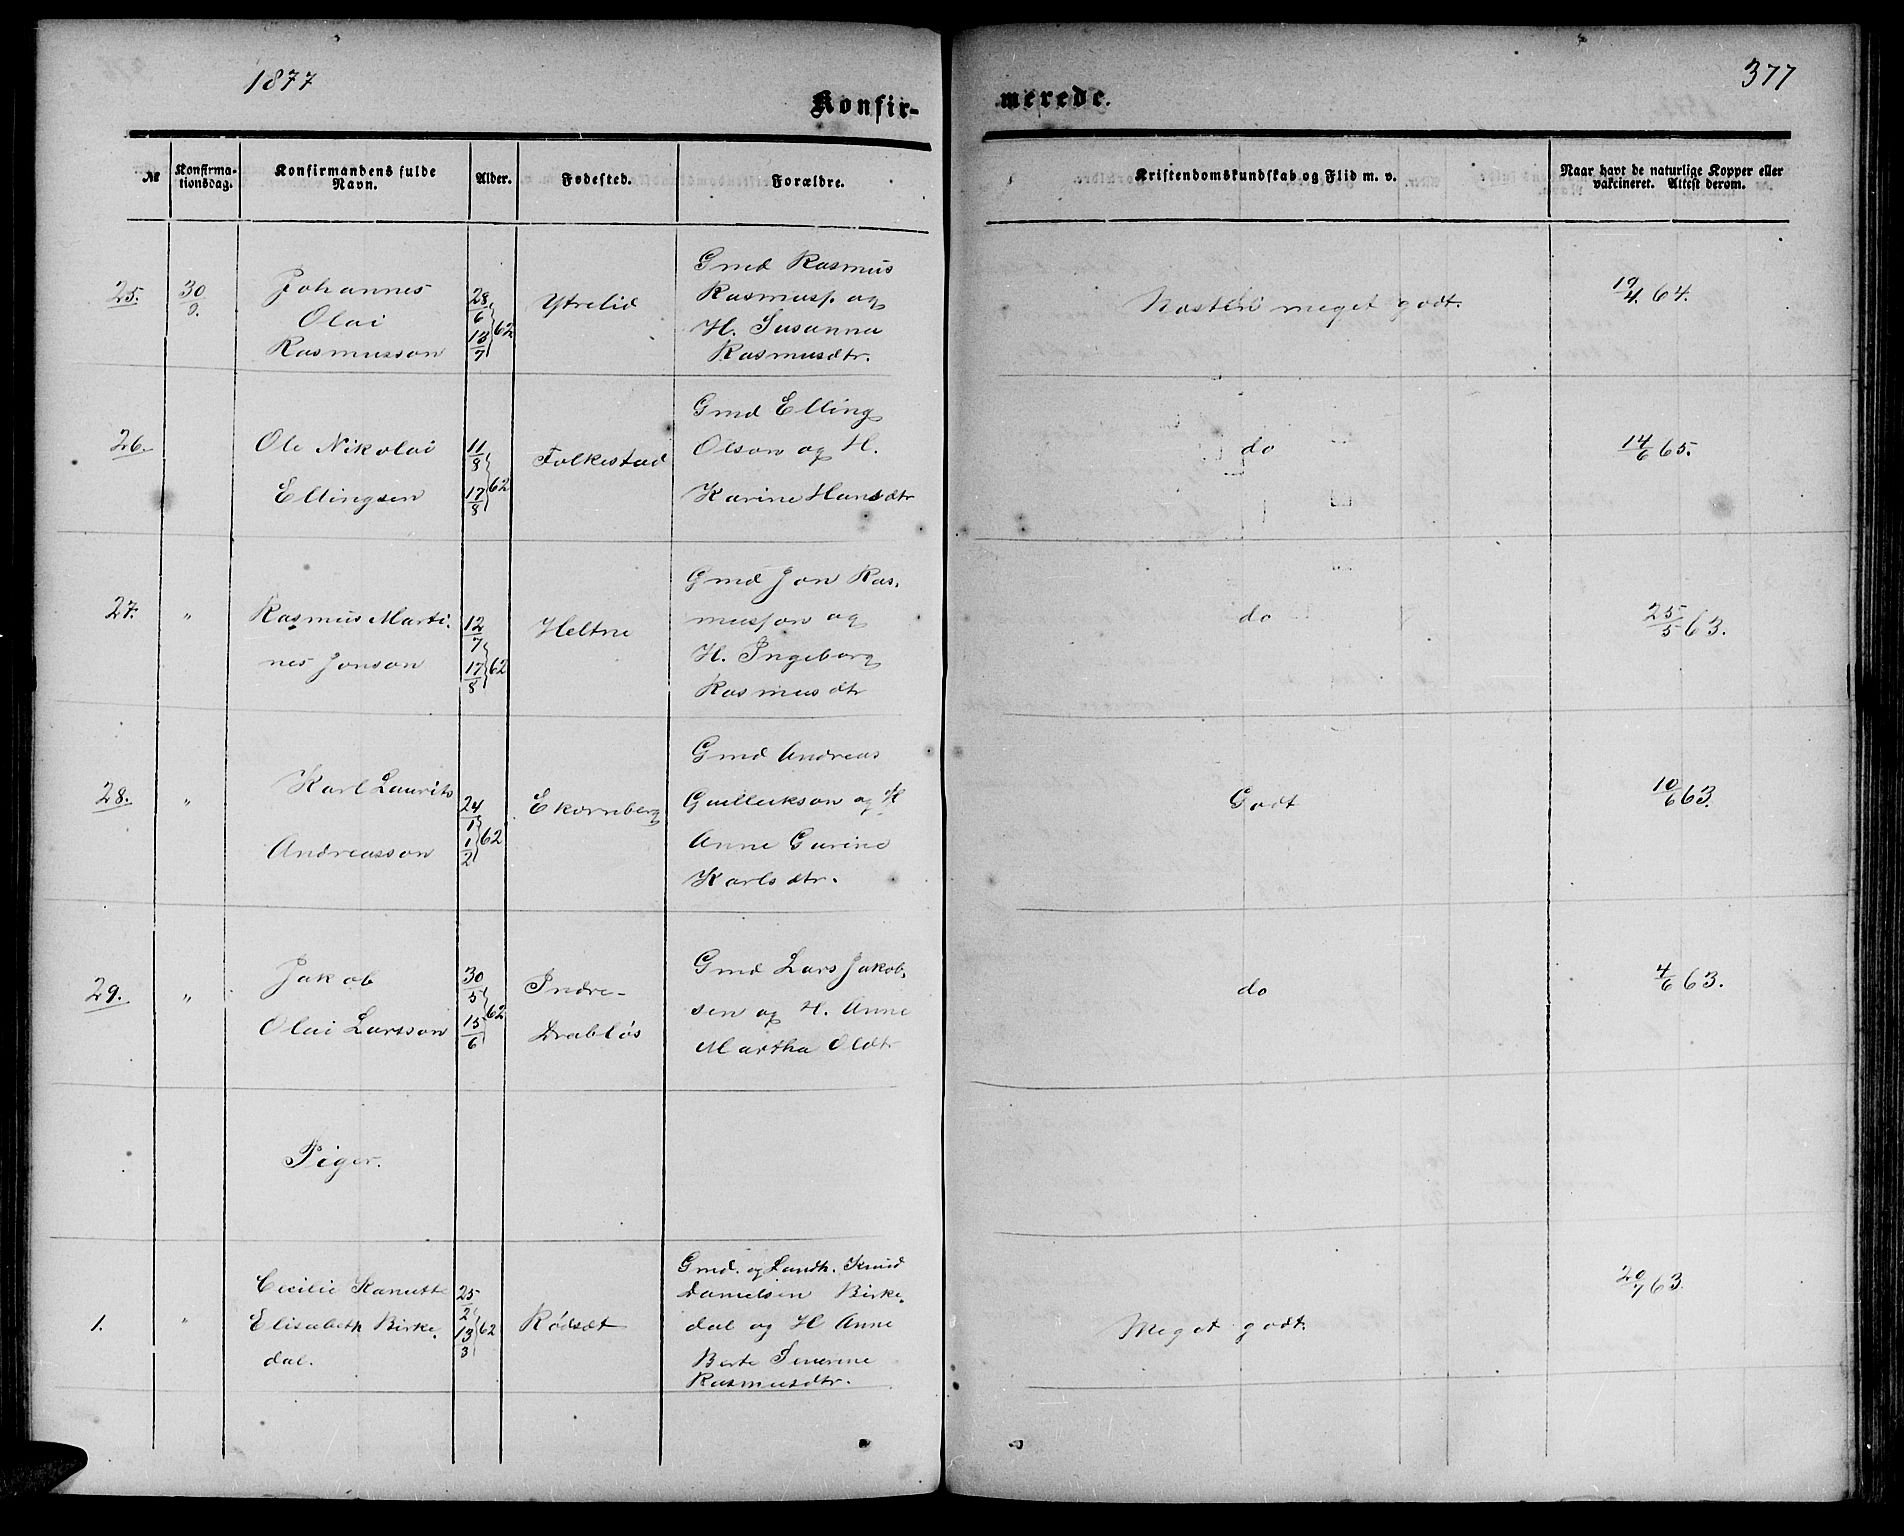 1877
377
Konfir-
merede.
№
Konfirma-
tionsdag.
Konfirmandens fulde
Navn.
Alder.
Fødested.
Forældre.
Kristendomskundskab og Flid m. v.
Naar havt de naturlige Kopper eller
vakcineret. Attest derom.
25.
30/9.
Johannes
Olai
Rasmusson
28/6
13/7 62
Ytrelid
Gmd Rasmus
Rasmuss. og
H. Susanna
Rasmusdtr.
Næsten meget godt.
19/4. 64.
26.
Ole Nikolai
Ellingsen
11/8
17/8 62
Folkestad
Gmd Elling
Olson og H.
Karine Hansdtr
do
14/6 65.
27.
"
Rasmus Marti-
nes Jonson
12/7
17/8 62
Heltne
Gmd Jon Ras-
musson og
H. Ingeborg
Rasmusdtr
do
25/5 63.
28.
"
Karl Laurits
Andreasson
24/1
1/2 62
Ekornberg
Gmd Andreas
Gullikson og H
Anne Gurine
Karlsdtr.
Godt
10/6 63.
29.
"
Jakob
Olai Larsson
30/5
15/6 62
Indre-
Drabløs
Gmd Lars Jakob-
sen og H. Anne
Martha Oldtr
do
4/6 63.
Piger.
1.
"
Cecilie Kanutte
Elisabeth Birke-
dal.
25/2
13/3 62
Rødsæt
Gmd. og Landh. Knud
Danielsen Birke-
dal og H Anne
Berte Severine
Rasmusdtr.
Meget godt.
29/7 63.